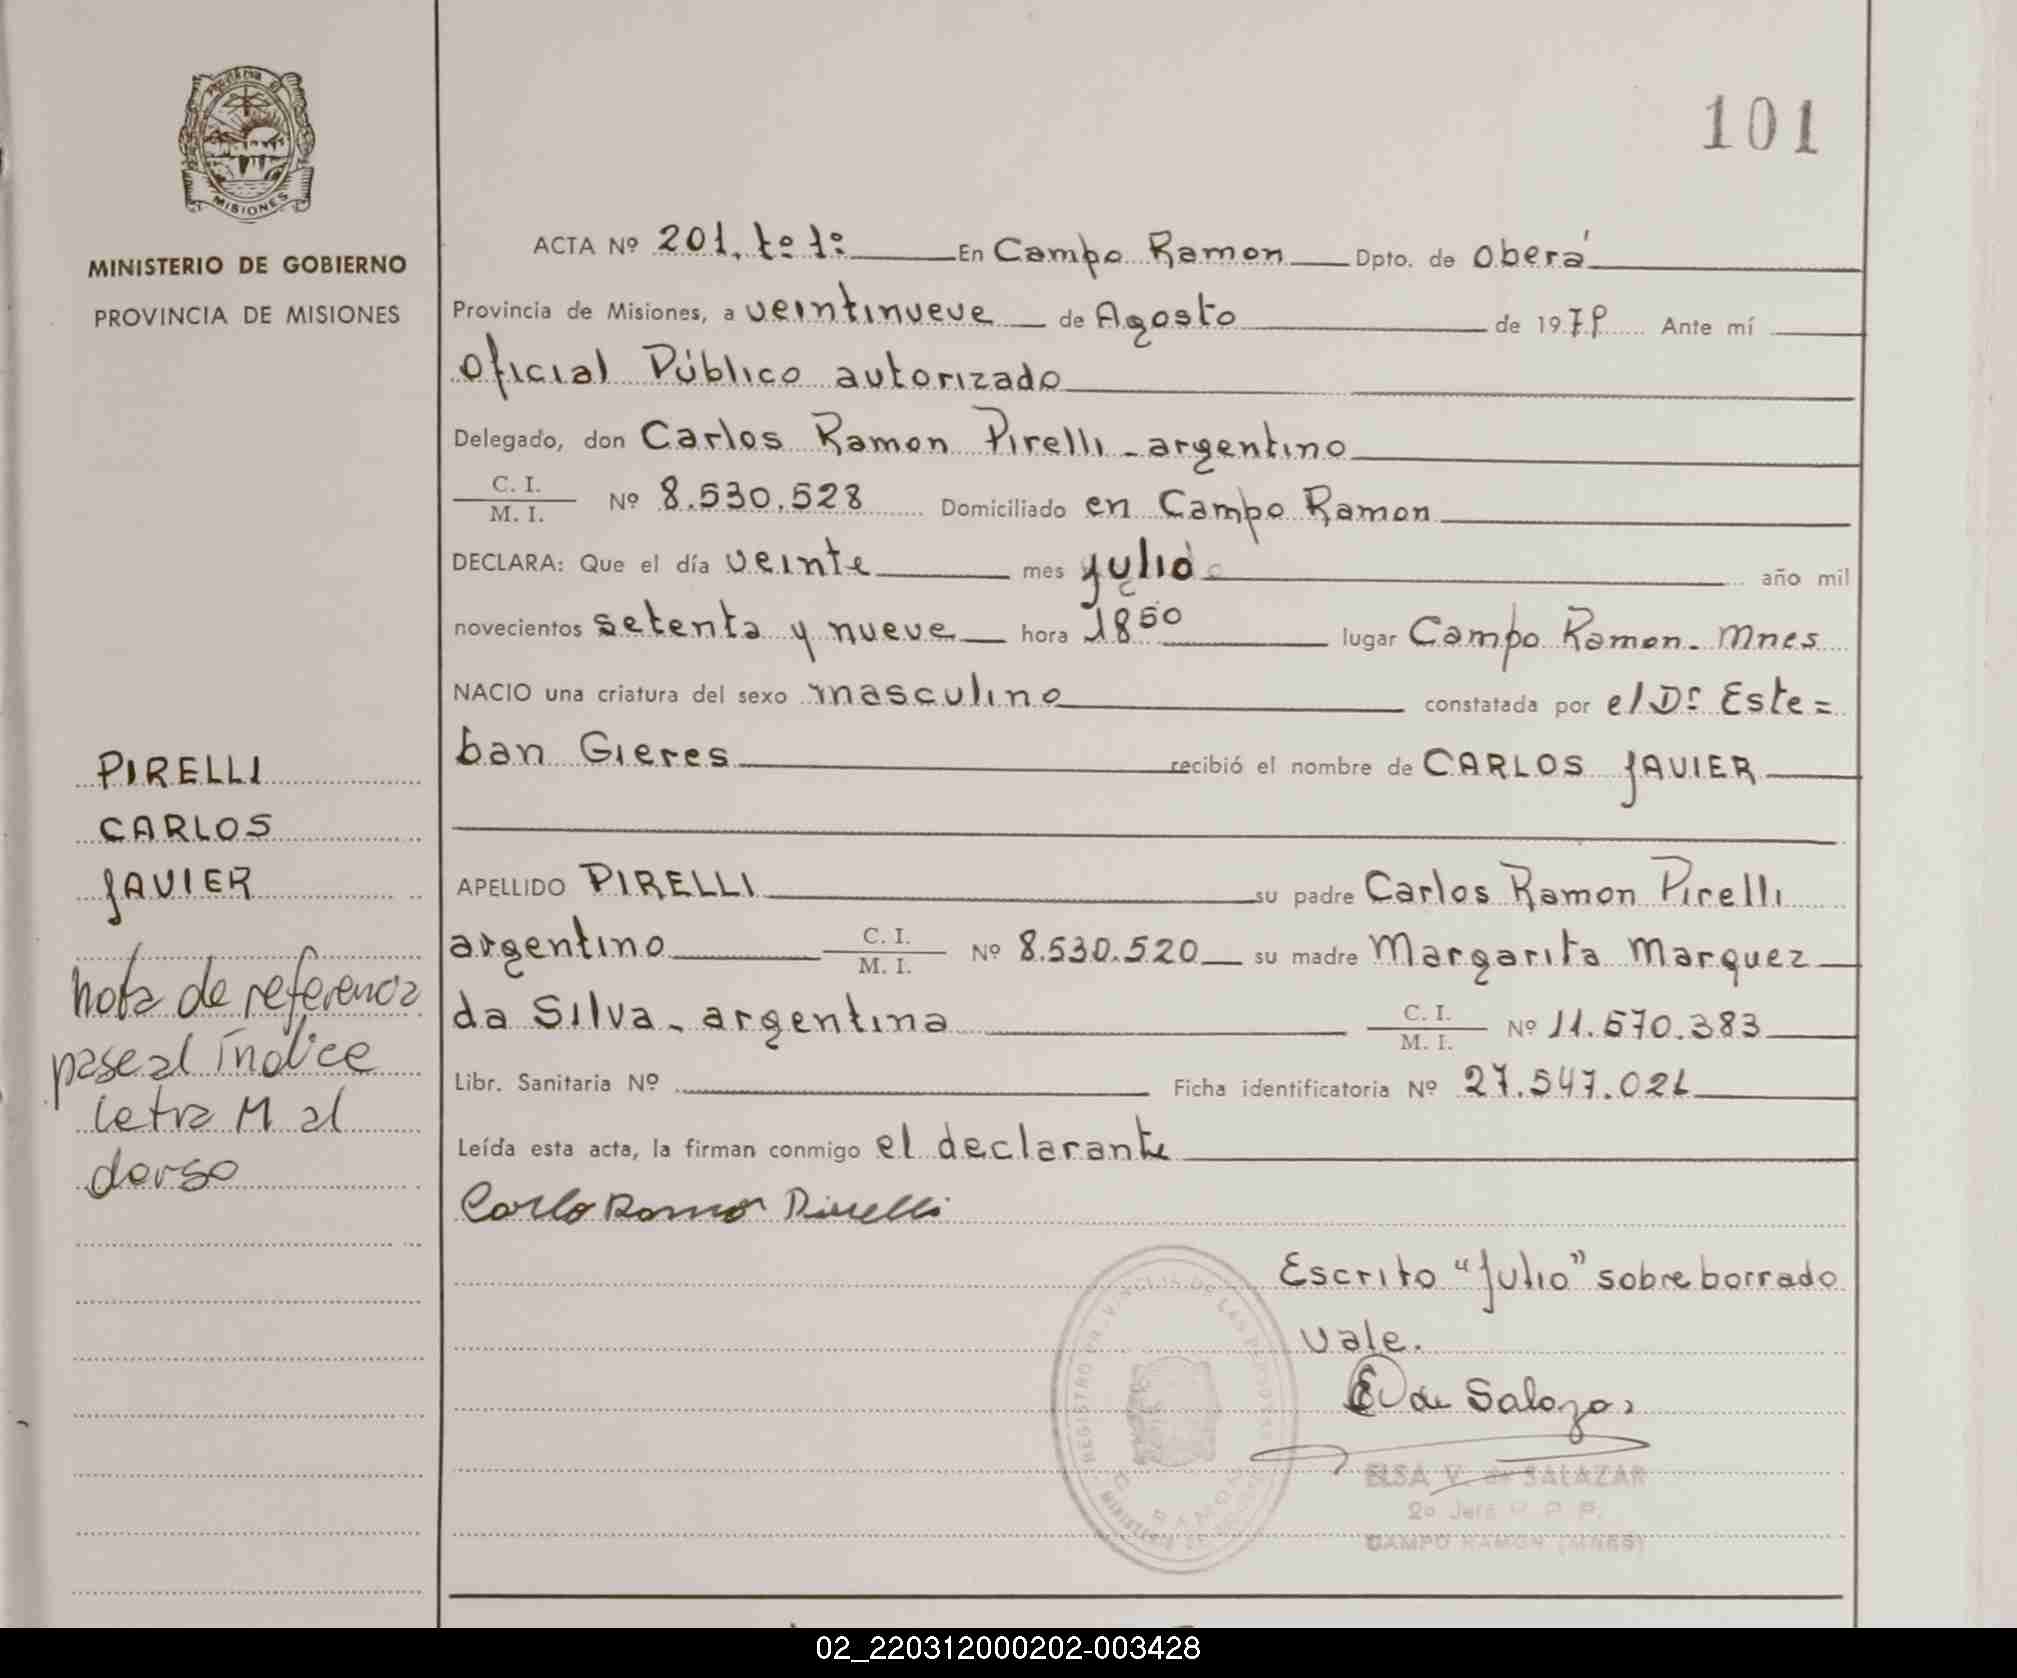 101
PROVINCIA DE
MISIONES
MINISTERIO DE GOBIERNO
PROVINCIA DE MISIONES
ACTA Nº 201. tº 1º En Campo Ramon Dpto. de Oberá
Provincia de Misiones, a veintinueve de Agosto de 1979 Ante mí
Oficial Público autorizado
Delegado, don Carlos Ramon Pirelli - argentino
C. I.
M. I. Nº 8.530.528 Domiciliado en Campo Ramon
DECLARA: Que el día veinte mes julio año mil
novecientos setenta y nueve hora 18 50 lugar Campo Ramon. Mnes
NACIO una criatura del sexo masculino constatada por el Dr Este=
ban Gieres recibió el nombre de CARLOS JAVIER
APELLIDO PIRELLI su padre Carlos Ramon Pirelli
argentino C. I.
M. I. Nº 8.530.520 su madre Margarita Marquez
da Silva - argentina C. I.
M. I. Nº 11.570.383
Libr. Sanitaria Nº Ficha identificatoria Nº 27.547.021
Leída esta acta, la firman conmigo el declarante
Carlo Ramon Pirelli
Escrito "Julio" sobre borrado
vale.
E V de Salazar
REGISTRO PROVINCIAL DE LAS PERSONAS
RAMON
ELSA V. de SALAZAR
2º Jefe R. P. P.
CAMPO RAMON (MNES)
PIRELLI
CARLOS
JAVIER
nota de referencia
pase al Índice
letra M al
dorso
02_220312000202-003428